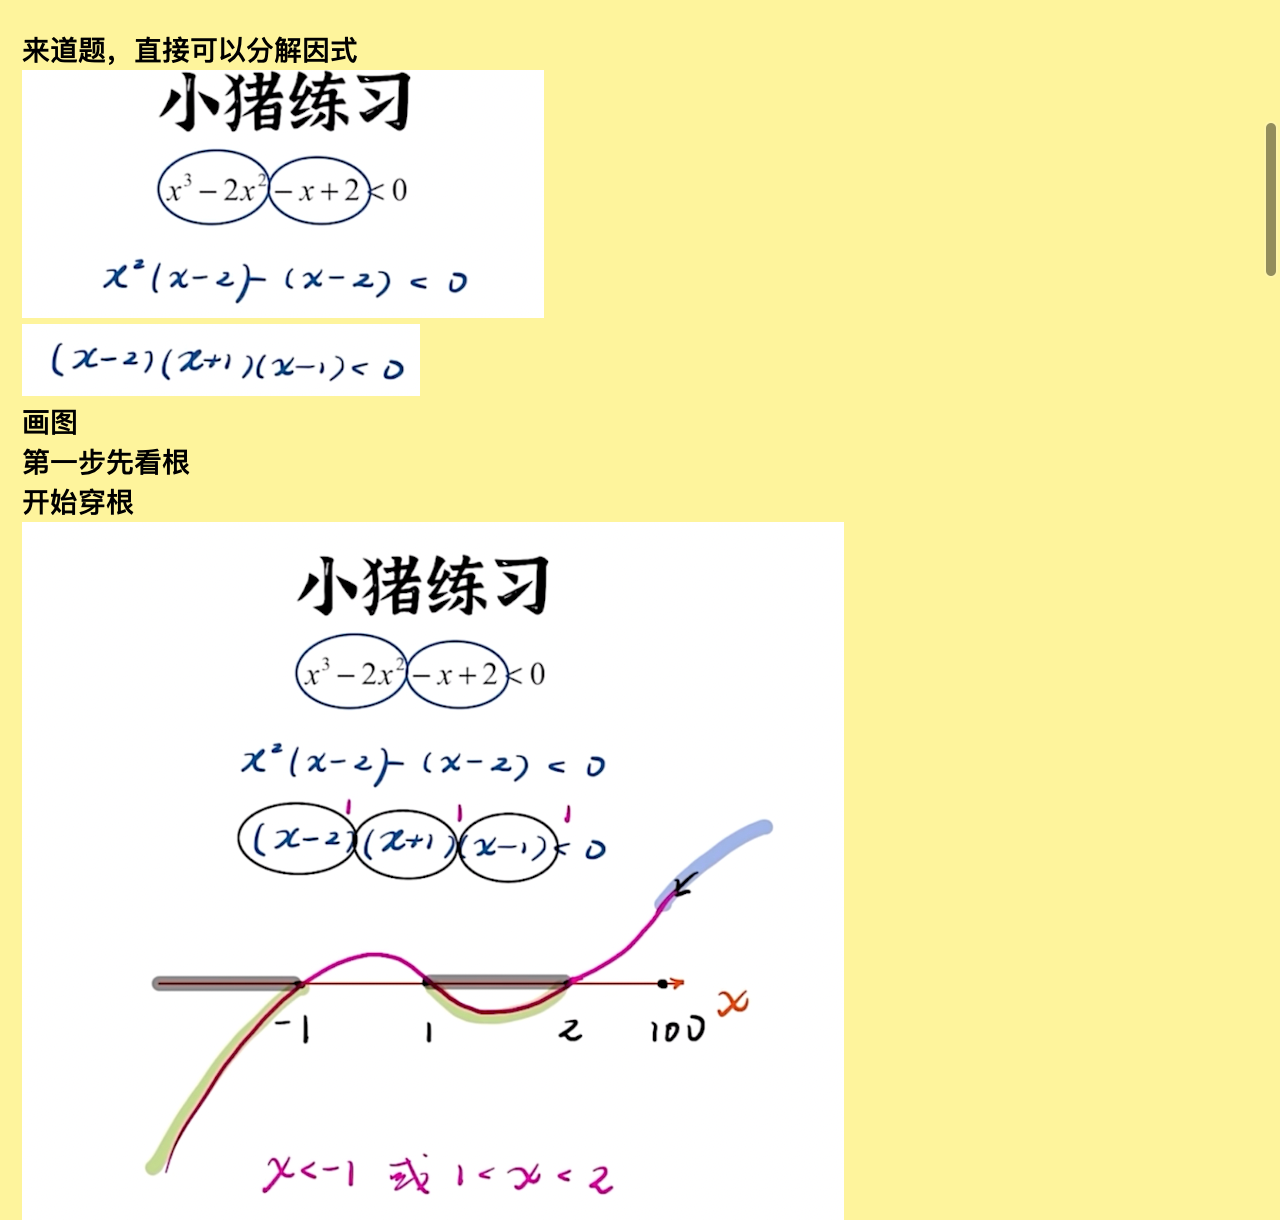 来道题，直接可以分解因式
小猪练习
x³ − 2x² − x + 2 < 0
x²(x−2) − (x−2) < 0
(x−2)(x+1)(x−1) < 0
画图
第一步先看根
开始穿根
小猪练习
x³ − 2x² − x + 2 < 0
x²(x−2) − (x−2) < 0
1 1 1
(x−2)(x+1)(x−1) < 0
−1 1 2 100 x
x<−1 或 1<x<2